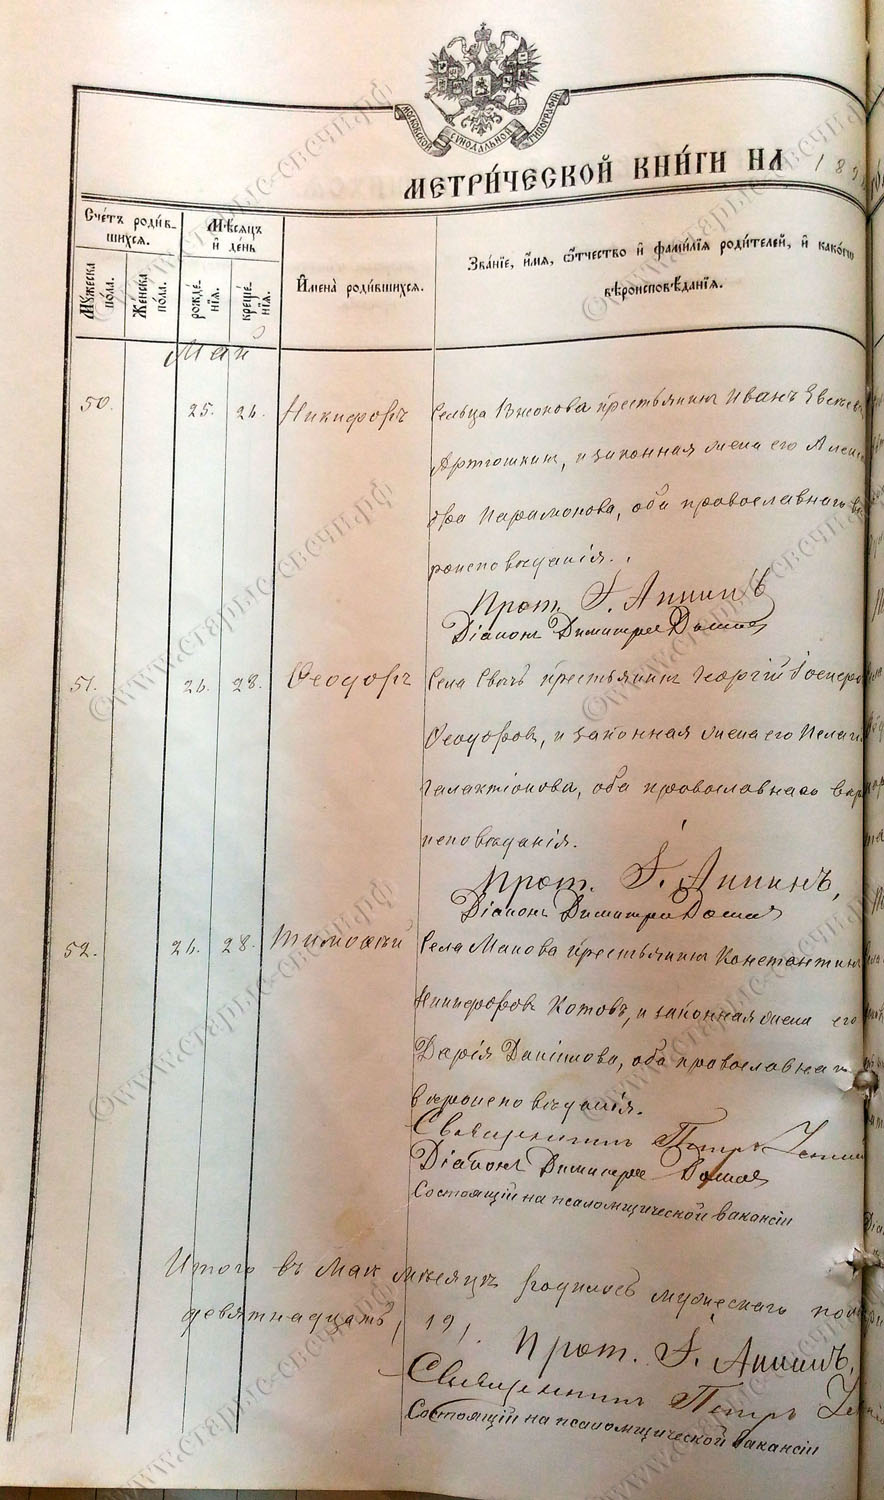 МОСКОВСКОЙ СѴНОДАЛЬНОЙ ТИПОГРАФІИ
МЕТРИ́ЧЕСКОЙ КНИ́ГИ НА 189
Сче́тъ роди́в-
шихся.
Мѣ́сяцъ
и҆ де́нь
Му́жеска
по́ла.
Же́нска
по́ла.
рожде́-
нїя.
креще́-
нїя.
И҆мена̀ роди́вшихся.
Зва́нїе, и҆́мя, ѻ҆́тчество и҆ фами́лїя роди́телей, и҆ како́гѡ
вѣроисповѣ́данїя.
Май
50. 25. 26. Никифоръ Сельца крестьянинъ Иванъ
Артюшкинъ, и законная жена его Алексан
дра Парамонова, оба православнаго вѣ
роисповѣданія.
Прот. І. Аннинъ
Діаконъ Димитрій
51. 26. 28. Ѳеодоръ Села крестьянинъ Георгій
Ѳеодоровъ, и законная жена его Пелагія
Галактіонова, оба православнаго вѣро
исповѣданія.
Прот. І. Аннинъ,
Діаконъ Димитрій
52. 26. 28. Тимоѳей Села Макова крестьянинъ Константинъ
Никифоровъ Котовъ, и законная жена его
Дарія Данилова, оба православнаго
вѣроисповѣданія.
Священникъ Петръ
Діаконъ Димитрій
Состоящій на псаломщической вакансіи
Итого въ Маѣ мѣсяцѣ родилось мужескаго пола
девятнадцать, 19,
Прот. І. Аннинъ,
Священникъ Петръ
Состоящій на псаломщической вакансіи
©www.старые-свечи.рф